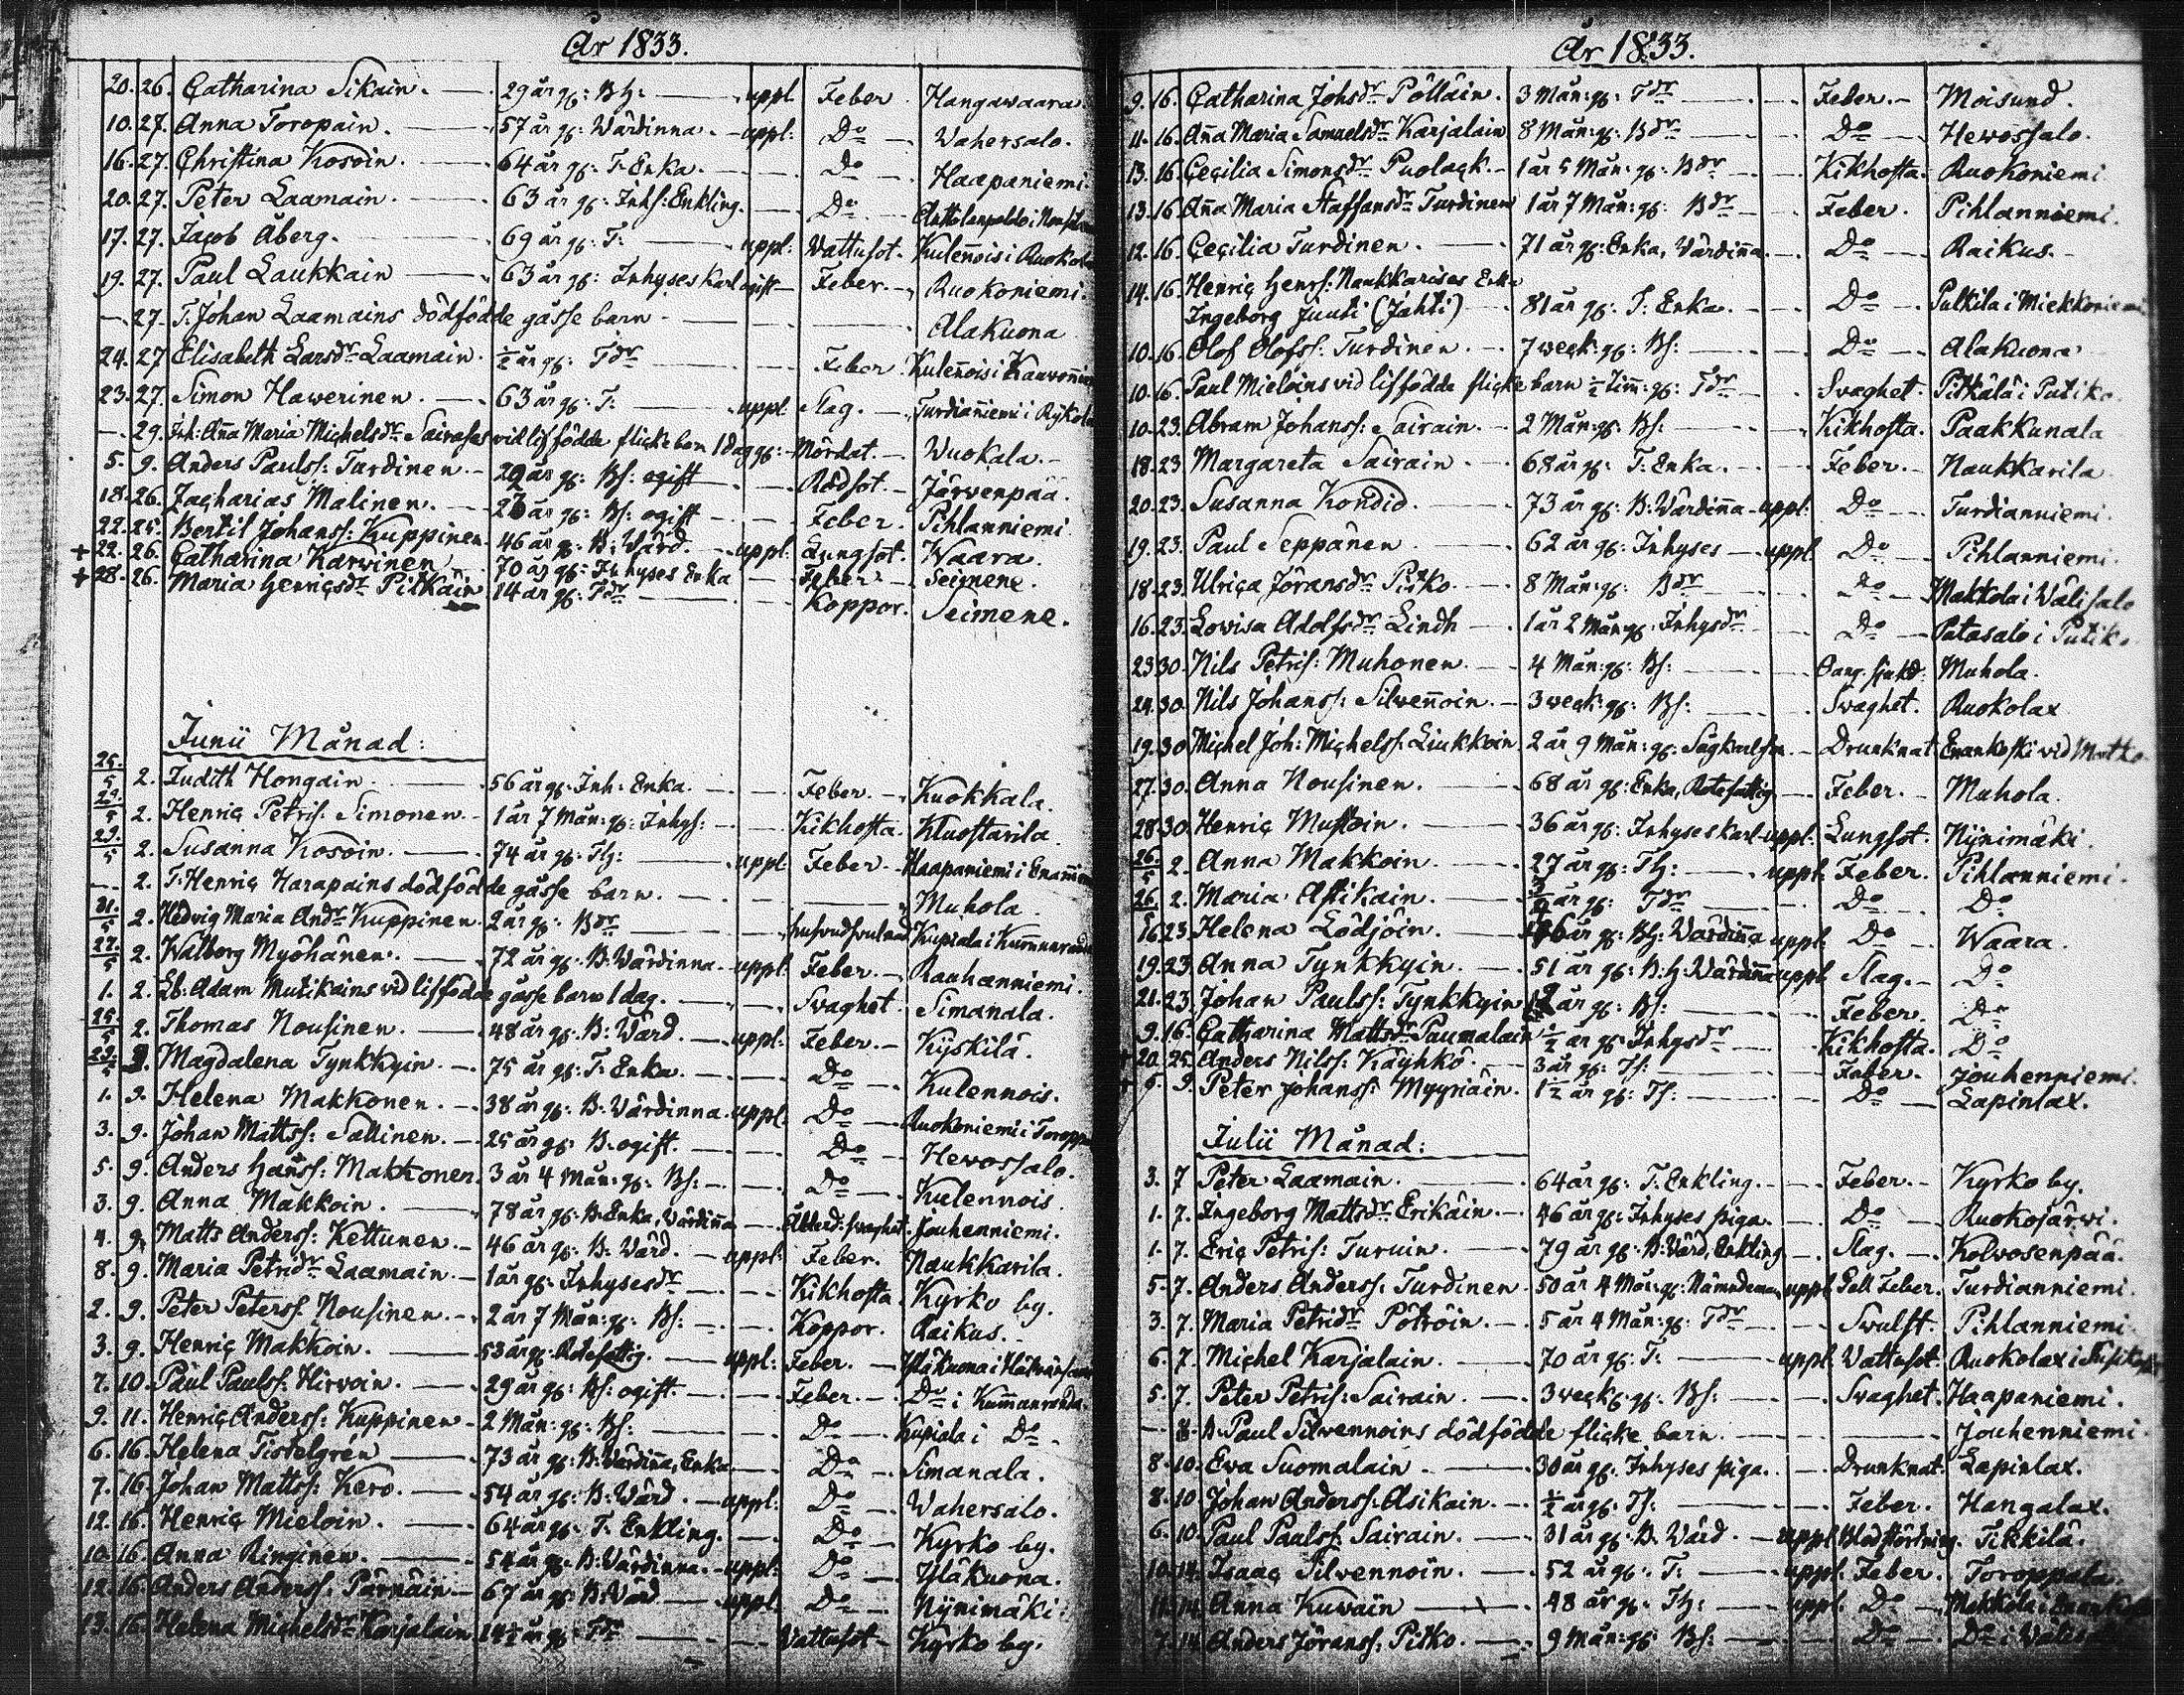 År 1833.
20. 26. Catharina Sikain. 29 år g: Bh: uppl. Feber Hangawaara
10. 27. Anna Toropain. 57 år g: Wärdinna. uppl: Do Wahersalo.
16. 27. Christina Kosoin. 64 år g: T. Enka. Do Haapaniemi.
20. 27. Peter Laamain. 63 år g: Inhs: Enkling. Do
17. 27. Jacob Åberg. 69 år g: T: uppl: Wattusot. Kulennois i Ruokola
19. 27. Paul Laukkain 63 år g: Inhyses karl ogift Feber. Ruokoniemi.
27. T. Johan Laamains dödfödde gåsse barn Alakuona
24. 27 Elisabeth Larsdr Laamain. ½ år g: Tdr Feber Kulennois i
23. 27. Simon Hawerinen. 63 år g: T: uppl Slag. Turdianiemi i
29. Inh: Anna Maria Michelsdr Sairases vid lif födde flicke barn 1 dag g: Mördat. Wuokala.
5. 9. Anders Paulss: Turdinen. 29 år g: Bs: ogift Rödsot. Järvenpää.
18. 26. Zacharias Malinen. 23 år g: Bs: ogift Feber. Pihlanniemi
22. 25. Bertil Johanss: Kuppinen. 46 år g: B. Wärd. uppl: Lungsot. Waara
+ 22. 26. Catharina Karvinen 70 år g: Inhyses Enka Feber Seimene.
+ 28. 26. Maria Henricsdr Pitkäin 14 år g: Tdr Koppor. Seimene.
Junii Månad:
25/5 2. Judith Hongain 56 år g: Inh: Enka. Feber. Kuokkala.
29/5 2. Henric Petris: Simonen. 1 år 7 Mån: g: Inhys: Kikhosta. Kluostarila.
29/5 2. Susanna Kosoin. 74 år g: Th: uppl: Feber Haapaniemi i
2. T. Henric Harapains dödfödde gåsse barn. Muhola
31/5 2. Hedvig Maria Andr Kuppinen. 2 år g: Bdr Kupiala i Kummanranda
27/5 2. Walborg Myöhänen. 72 år g: B. Wärdinna uppl: Feber. Rauhanniemi.
1. 2. Lb: Adam Mutikains vid lif födde gåsse barn 1 dag. Svaghet Simanala.
25/5 2. Thomas Nousinen. 48 år g: B. Wärd. uppl: Feber. Kÿskilä.
29/5 Magdalena Tynkkyin. 75 år g: T. Enka. Do Kulennois.
1. 9. Helena Makkonen. 38 år g: B. Wärdinna. uppl: Do Ruokoniemi i
3. 9. Johan Mattss: Sallinen. 25 år g: B. ogift. Do Hevossalo.
5. 9. Anders Hanss: Makkonen. 3 år 4 Mån: g: Bs: Do Kulennois
3. 9. Anna Makkoin. 78 år g: B. Enka, Wärdinna Ålderd: svaghet. Jouhenniemi.
4. 9. Matts Anderss: Kettunen. 46 år g: B. Wärd. uppl: Feber. Naukkarila.
8. 9. Maria Petridr Laamain. 1 år g: Inhysesdr Kikhosta Kyrko by.
2. 9. Peter Peterss. Nousinen. 2 år 7 Mån: g: Bs: Koppor. Raikus.
3. 9. Henric Makkoin. 53 år g: Rotefattig. uppl: Feber. Yläkuona i
7. 10. Paul Paulss: Hirvoin. 29 år g: Bs: ogift. Feber. Do i Kummanranda.
9. 11. Henric Anderss: Kuppinen 2 Mån: g: Bs: Do Kupiala i Do
6. 16. Helena Tistelgrén 73 år g: B. Wärdinna, Enka Do Simanala.
7. 16. Johan Mattss: Kero. 54 år g: B. Wärd. uppl: Do Wahersalo.
12. 16. Henric Mieloin. 64 år g: T. Enkling. Do Kyrko by.
10. 16 Anna Ringinen. 54 år g: B. Wärdinna. uppl: Do Yläkuona.
12. 16. Anders Anderss: Pärnäin 67 år g: B. Wärd uppl: Do Nÿnimäki.
13. 16. Helena Michelsdr Karjalain 14½ år g: Tdr Wattusot Kyrko by.
År 1833.
9. 16. Catharina Johsdr Pölläin. 3 Mån: g: Tdr Feber. Moisund.
11. 16. Anna Maria Samuelsdr Karjalain 8 Mån: g: Bdr Do Hewossalo.
13. 16. Cecilia Simonsdr Puolack. 1 år 5 Mån: g: Bdr Kikhosta. Ruokoniemi
13. 16 Anna Maria Staffansdr Turdinen 1 år 7 Mån: g: Bdr Feber. Pihlanniemi.
12. 16. Cecilia Turdinen. 71 år g: Enka, Wärdinna. Do Raikus.
14. 16. Henric Henrs: Naukkarises Enka
Ingeborg Juuti (Jahti) 81 år g: T. Enka. Do Pulkila i Miekkoniemi
10. 16. Olof Olofss: Turdinen. 7 week: g: Bs: Do Alakuona
10. 16. Paul Mieloins vid lif födde flicke barn ½ Tim: g: Tdr Svaghet. Pitkälä i Putiko.
10. 23. Abram Johanss: Sairain. 2 Mån: g: Bs: Kikhosta. Paakkunala
18. 23 Margareta Sairain. 68 år g: T. Enka. Feber. Naukkarila
20. 23. Susanna Kondid. 73 år g: B. Wärdinna uppl: Do Turdianniemi.
19. 23. Paul Seppänen 62 år g: Inhyses uppl. Do Pihlanniemi.
18. 23. Ulrica Jöransdr Pitko. 8 Mån: g: Bdr Do Makkola i Wälisalo
16. 23. Lovisa Adolfsdr Lindh 1 år 2 Mån: g: Inhysdr Do Patasalo i Putiko
23 30. Nils Petris: Muhonen. 4 Mån: g: Bs: Muhola.
24. 30. Nils Johanss: Silvennoin. 3 week: g: Bs: Svaghet. Ruokolax
19. 30 Michel Joh: Michelss: Liukkoin 2 år 9 Mån: g: Drunknat Enankoski vid
27. 30. Anna Nousinen. 68 år g: Enka, Rotefattig Feber. Muhola.
28. 30. Henric Mustoin. 36 år g: Inhyses karl uppl: Lungsot. Nÿnimäki.
26/5 2. Anna Makkoin. 27 år g: Th: uppl: Feber. Pihlanniemi.
26/5 2. Maria Asikain. ¾ år g: Tdr Do Do
16. 23. Helena Lödjöin. år g: Bh: Wärdinna uppl: Do Waara.
19. 23. Anna Tynkkyin. 51 år g: B. h: Wärdinna uppl Slag. Do
21. 23. Johan Paulss: Tynkkyin år g: Bs: Feber. Do
9. 16. Catharina Mattsdr Paumalain ½ år g: Inhysdr Kikhosta. Do
+ 20. 25. Anders Nilss: Käyhkö. 3 år g: Ts: Feber. Jouhenniemi.
+ 9. 9. Peter Johanss: Myyriäin. 1½ år g: Ts: Do Lapinlax.
Julii Månad:
3. 7 Peter Laamain. 64 år g: T. Enkling. Feber. Kyrko by.
1. 7. Ingeborg Mattsdr Erikäin 46 år g: Inhyses piga. Do Ruokojärwi.
1. 7. Eric Petris: Turuin. 79 år g: B. Wärd, Enkling Slag. Kolvosenpää.
5. 7. Anders Anderss: Turdinen 50 år 4 Mån: g: Nämndeman uppl: Gall Feber. Turdianniemi.
3. 7. Maria Petridr Pöiröin. 5 år 4 Mån: g: Tdr Swulst. Pihlanniemi.
6. 7. Michel Karjalain. 70 år g: T: uppl: Wattusot. Ruokolax i
5. 7. Peter Petris: Sairain. 3 week g: Bs: Svaghet. Haapaniemi.
8. B. Paul Silvennoins dödfödde flicke barn. Jouhenniemi.
8. 10. Eva Suomalain 30 år g: Inhyses piga. Drunknat. Lapinlax.
8. 10 Johan Anderss: Asikain. ½ år g: Ts: Feber. Hangalax.
6. 10. Paul Paulss: Sairain. 31 år g: B. Wärd. uppl: Blodstörtning. Tikkilä.
10. 14. Isaac Silvennoin. 52 år g: T: uppl: Feber. Toroppala.
11. 14. Anna Kuwain 48 år g: Th: uppl: Do Makkola i
7. 14. Anders Jöranss: Pitko. 9 Mån: g: Bs: Do Do i